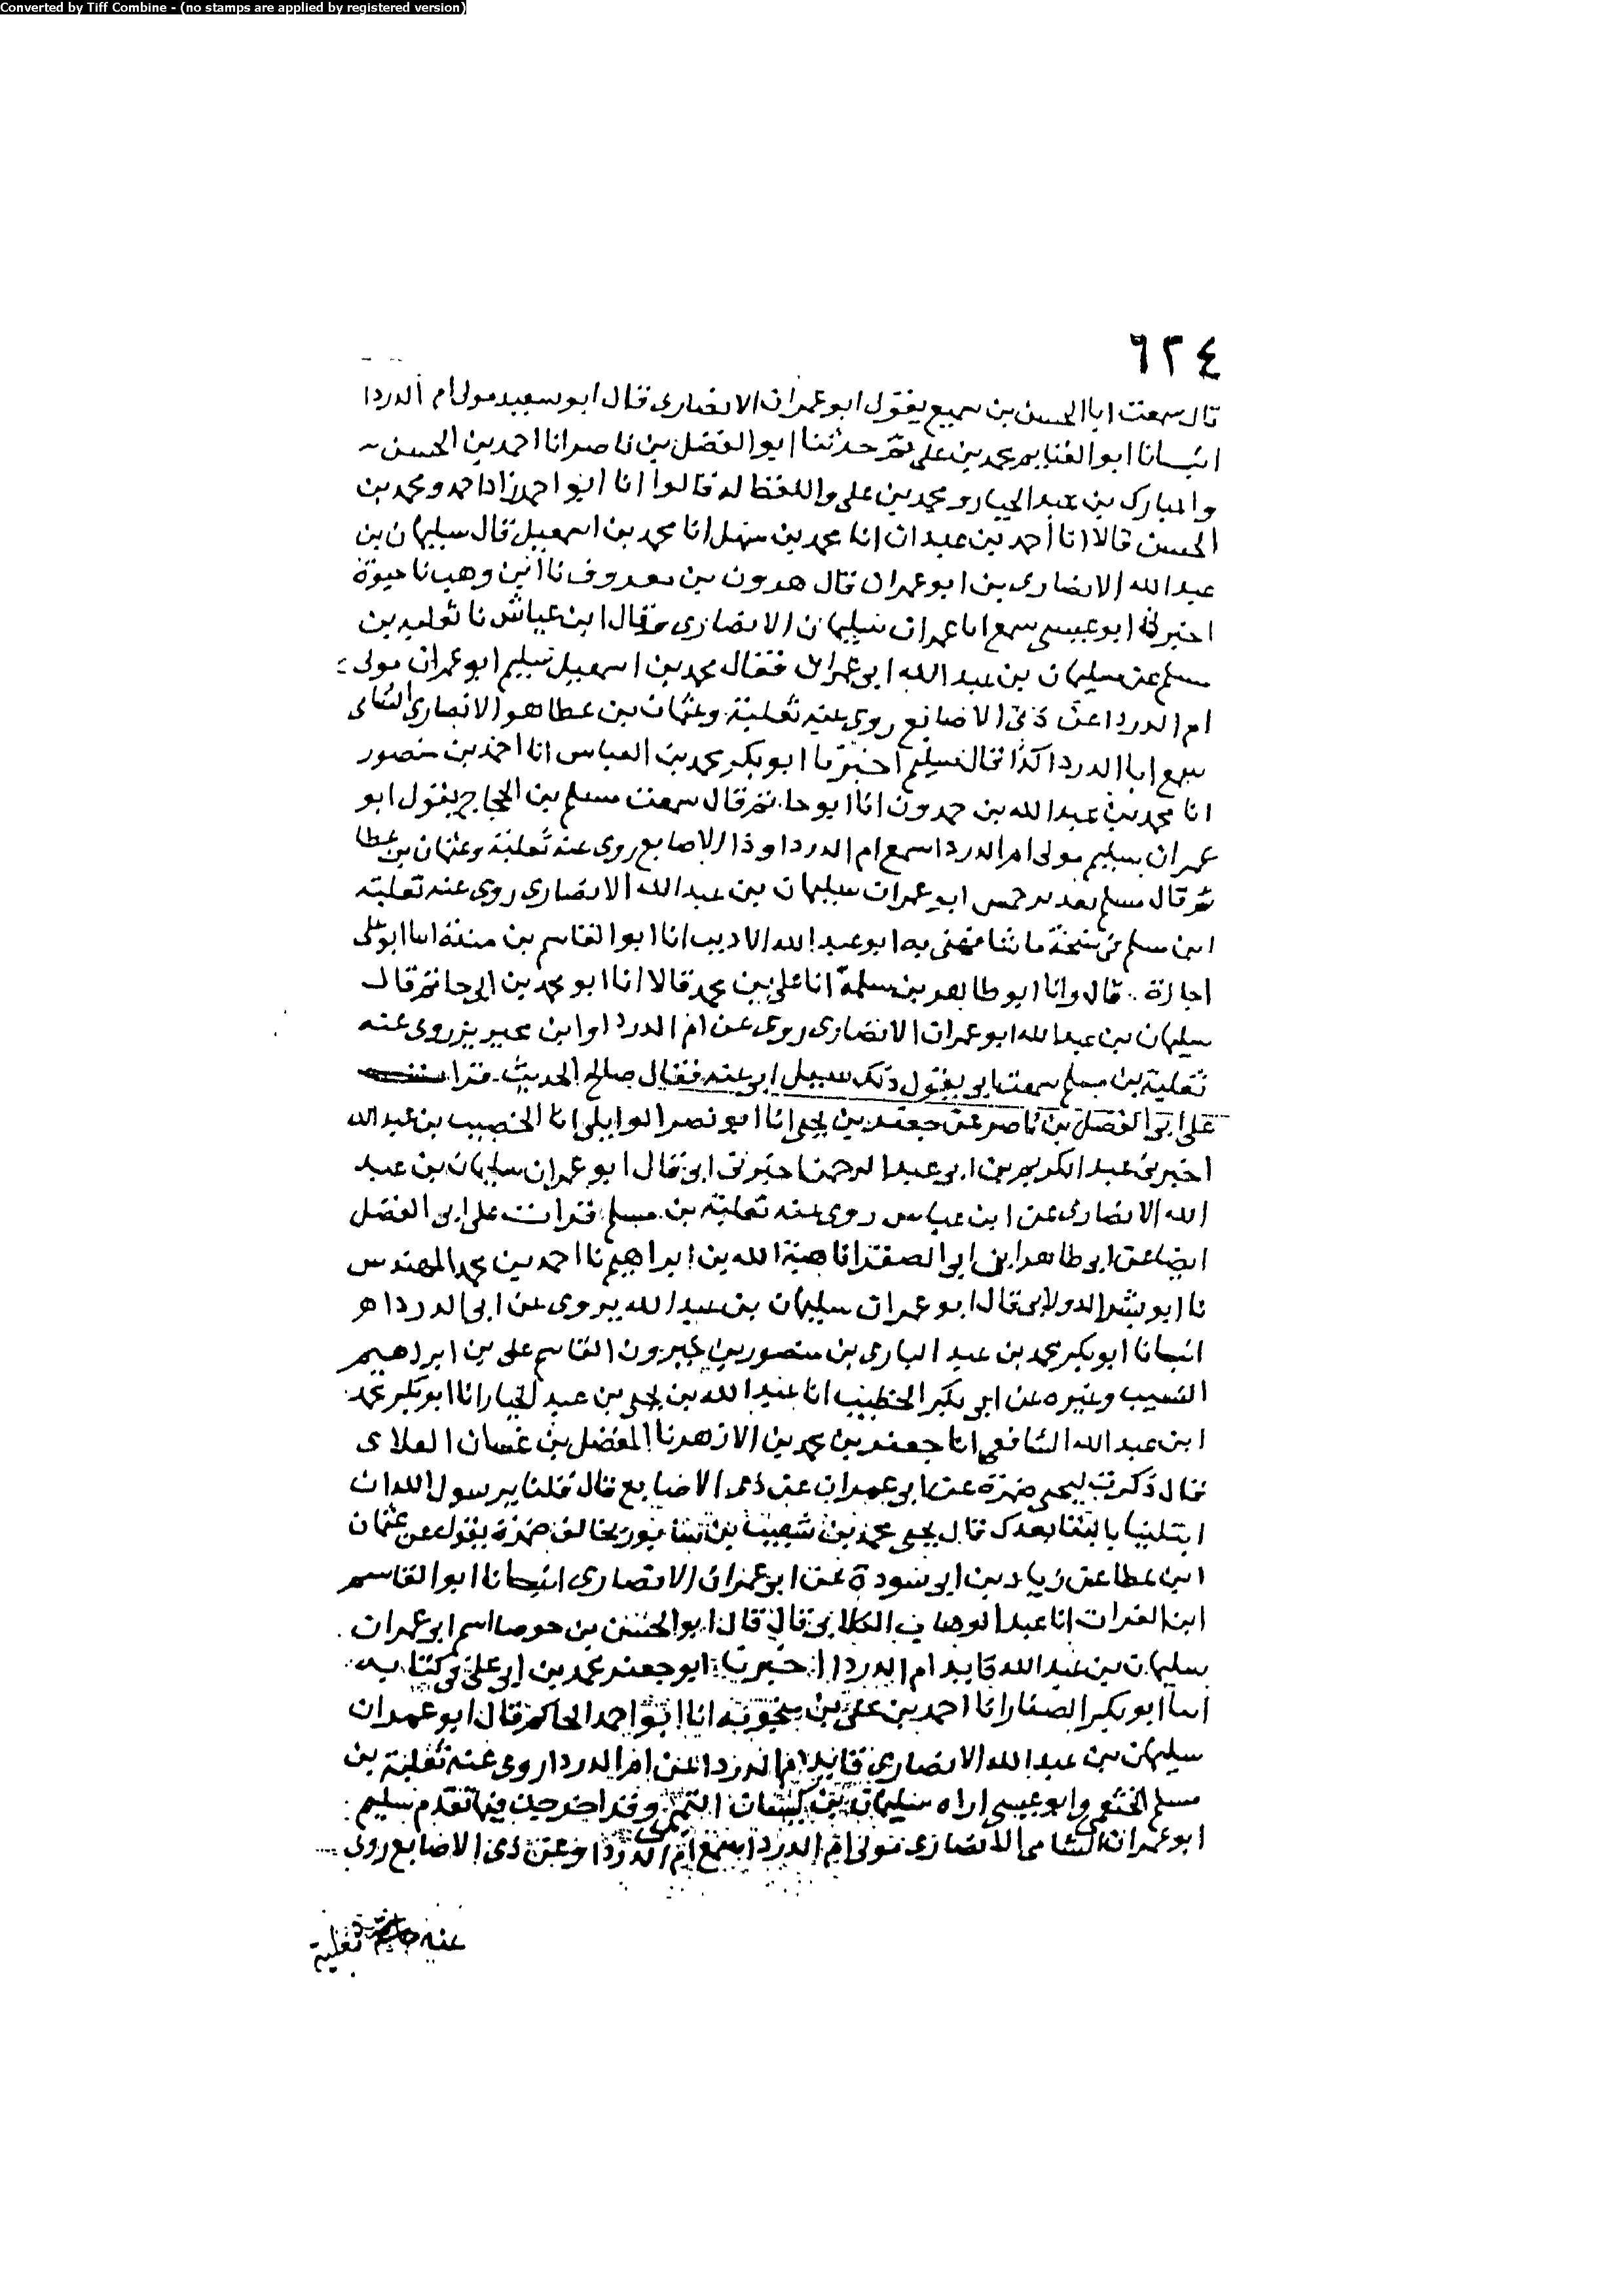 Converted by Tiff Combine - (no stamps are applied by registered version)
٦٢٤
قال سمعت ابا الحسن بن سميع يقول ابو عمران الانصارى قال ابو سعيد مولى ام الدردا
انبانا ابو الغنايم محمد بن على ثم حدثنا ابو الفضل بن ناصر انا احمد بن الحسن
والمبارك بن عبد الجبار ومحمد بن على واللفظ له قالوا انا ابو احمد زاد احمد ومحمد بن
الحسن قالا انا أحمد بن عبدان انا محمد بن سهل انا محمد بن اسمعيل قال سليمان بن
عبد الله الانصارى بن ابو عمران قال هرون بن معروف نا ابن وهب نا حيوة
اخبرنى ابو عيسى سمع ابا عمران سليمان الانصارى وقال ابن عياش نا ثعلبه بن
مسلم عن سليمان بن عبد الله ابى عمران فقال محمد بن اسمعيل سليم ابو عمران مولى
ام الدردا عن ذى الاصابع روى عنه ثعلبة وعثمان بن عطا هو الانصارى الشامى
سمع ابا الدردا كذا قال سليم اخبرنا ابو بكر محمد بن العباس انا احمد بن منصور
انا محمد بن عبد الله بن حمدون انا ابو حاتم قال سمعت مسلم بن الحجاج يقول ابو
عمران سليم مولى ام الدردا سمع ام الدردا وذا الاصابع روى عنه ثعلبة وعثمان بن عطا
ثم قال مسلم بعد ابو عمران سليمان بن عبد الله الانصارى روى عنه ثعلبة
ابن مسلم فى نسخة ما شافهنى به ابو عبد الله الاديب انا ابو القاسم بن مندة انا ابو على
اجازة . قال وانا ابو طاهر بن سلمة انا على بن محمد قالا انا ابو محمد بن ابى حاتم قال
سليمان بن عبد الله ابو عمران الانصارى روى عن ام الدردا وابن محيريز روى عنه
ثعلبة بن مسلم سمعت ابى يقول ذلك سييل ابى عنه فقال صالح الحديث . قرات
على ابى الفضل بن ناصر عن جعفر بن يحيى انا ابو نصر الوايلى انا الخصيب بن عبد الله
اخبرنى عبد الكريم بن ابى عبد الرحمن اخبرنى ابى قال ابو عمران سليمان بن عبد
الله الانصارى عن ابن عباس روى عنه ثعلبة بن مسلم قرات على ابى الفضل
ايضا عن ابى طاهر ابن ابى الصقر انا هبة الله بن ابراهيم نا احمد بن محمد المهندس
نا ابو بشر الدولابى قال ابو عمران سليمان بن عبد الله يروى عن ابى الدردا هر
انبانا ابو بكر محمد بن عبد البارى بن منصور بن خيرون القاسم على بن ابرهيم
النسيب وغيره عن ابى بكر الخطيب انا عبد الله بن يحيى بن عبد الجبار انا ابو بكر محمد
ابن عبد الله الشافعى انا جعفر بن محمد بن الازهر نا المفضل بن غسان الغلابى
قال ذكرت ليحيى ضمرة عن ابى عمران عن ذى الاصابع قال قلنا يرسول الله ان
ابتلينا بالبقا بعدك قال يحيى محمد بن شعيب بن شابور يخالف ضمرة يقول عن عثمان
ابن عطا عن زياد بن ابى سودة عن ابى عمران الانصارى انبانا ابو القاسم
ابن الفرات انا عبد الوهاب الكلابى قال قال ابو الحسن بن جوصا اسم ابى عمران .
سليمان بن عبد الله قايد ام الدردا اخبرنا ابو جعفر محمد بن ابى على فى كتابه
انبا ابو بكر الصفار انا احمد بن على بن منجويه انا ابو احمد الحاكم قال ابو عمران
سليمان بن عبد الله الانصارى قايد ام الدردا عن ام الدردا روى عنه ثعلبة بن
مسلم الخثعمى وابو عيسى اراه سليمان بن كيسان وقد اخرجت فيما تقدم سليم
ابو عمران الشامى الانصارى مولى ام الدردا سمع ام الدردا وعن ذى الاصابع روى
عنه ثعلبة